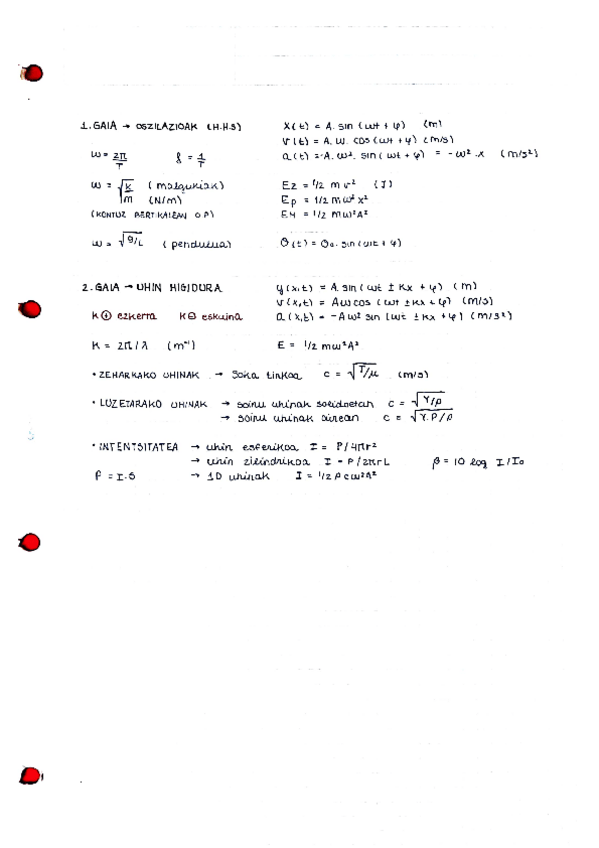 1. GAIA → OSZILAZIOAK (H.H.S) X(t) = A. sin (ωt + φ) (m)
v(t) = A. ω. cos (ωt + φ) (m/s)
ω = 2π/T f = 1/T a(t) = -A. ω². sin (ωt + φ) = -ω². x (m/s²)
ω = √k/m (malgukiak) Ez = 1/2 m v² (J)
(N/m) Ep = 1/2 m ω² x²
(KONTUZ BERTIKALEAN O.P) EM = 1/2 m ω² A²
ω = √g/L (pendulua) θ(t) = θ₀. sin (ωt + φ)
2. GAIA → UHIN HIGIDURA y(x,t) = A. sin (ωt ± kx + φ) (m)
v(x,t) = Aω cos (ωt ± kx + φ) (m/s)
K ⊕ ezkerra K ⊖ eskuina a(x,t) = -Aω² sin (ωt ± kx + φ) (m/s²)
K = 2π/λ (m⁻¹) E = 1/2 mω²A²
• ZEHARKAKO UHINAK → Soka tinkoa c = √T/μ (m/s)
• LUZETARAKO UHINAK → soinu uhinak solidoetan c = √Y/ρ
→ soinu uhinak airean c = √γ.P/ρ
• INTENTSITATEA → uhin esferikoa I = P/4πr²
→ uhin zilindrikoa I = P/2πrL β = 10 log I/I₀
P = I.S → 1D uhinak I = 1/2 ρcω²A²